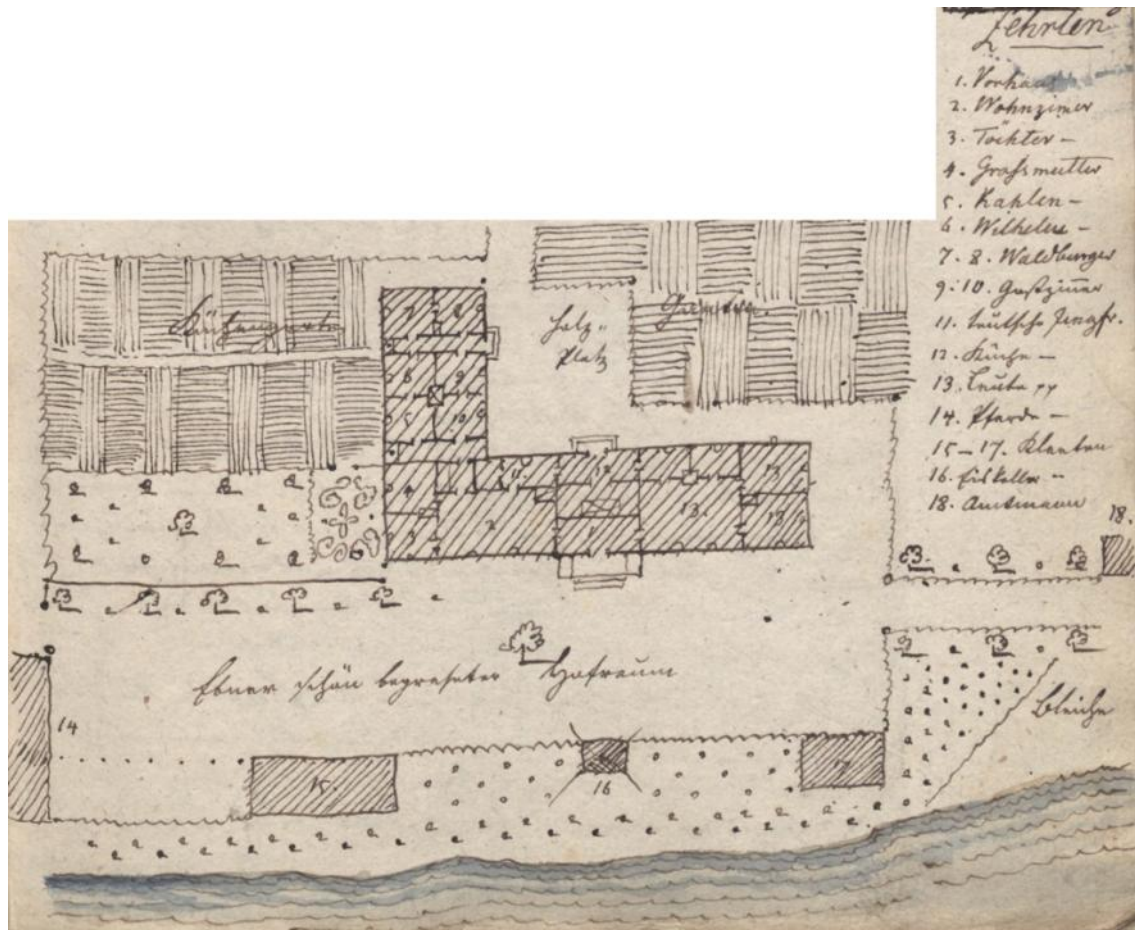 Zehrten
1. Vorhaus
2. Wohnzimer
3. Töchter –
4. Großmutter
5. Kahlen –
6. Wilhelm –
7. 8. Waldburger
9. 10. Gastzimer
11. teutsche Jungfr.
12. Küche –
13. Leute pp
14. Pferde –
15–17. Kleeten
16. Eiskeller –
18. Amtmann
Küchengarten
Holz-
Platz
Garten.
7
8
6
9
5
10
4
11.
12
13
3
2
1
13.
18
18.
Ebner schön begraseter Hofraum
Bleiche
14
15.
16
17